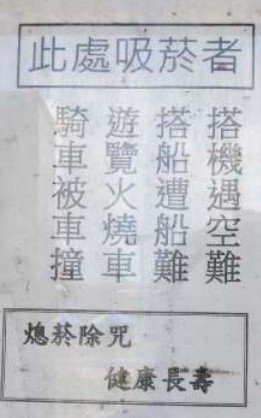 此處吸菸者
搭機遇空難
搭船遭船難
遊覽火燒車
騎車被車撞
熄菸除咒
健康長壽